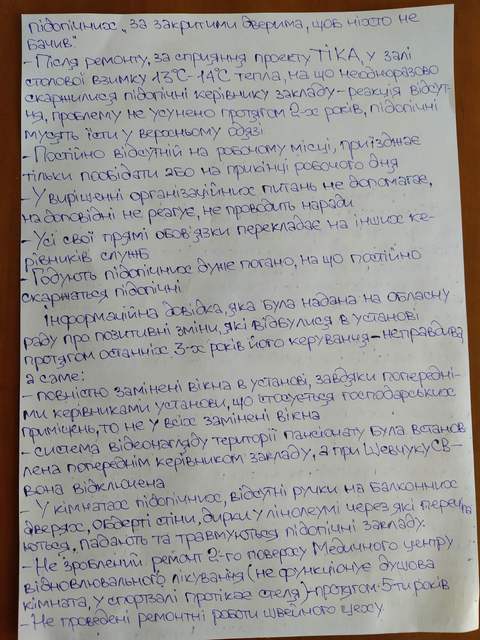 підопічних „за закритими дверима, щоб ніхто не
бачив."
- Після ремонту, за сприяння проекту ТІКА, у залі
столової взимку 13°С-14°С тепла, на що неодноразово
скаржилися підопічні керівнику закладу-реакція відсут-
ня, проблему не усунено протягом 2-х років, підопічні
мусять їсти у верхньому одязі
- Постійно відсутній на робочому місці, приїзджає
тільки пообідати або на прикінці робочого дня
- У вирішенні організаційних питань не допомагає,
на доповідні не реагує, не проводить наради
- Усі свої прямі обов'язки перекладає на інших ке-
рівників служб
- Годують підопічних дуже погано, на що постійно
скаржаться підопічні
Інформаційна довідка, яка була надана на обласну
раду про позитивні зміни, які відбулися в установі
протягом останніх 3-х років його керування-неправдива
а саме:
- повністю замінені вікна в установі, завдяки попередні-
ми керівниками установи, що стосується господарських
приміщень, то не у всіх замінені вікна
- система відеонагляду території пансіонату була встанов
лена попереднім керівником закладу, а при Шевчуку СВ-
вона відключена
- У кімнатах підопічних, відсутні ручки на балконних
дверях, обдерті стіни, дирки у лінолеумі через які перечіпа
ються, падають та травмуються підопічні закладу.
- Не зроблений ремонт 2-го поверху Медичного центру
відновлювального лікування (не функціонує душова
кімната, у спортзалі протікає стеля)-протягом 5-ти років
- Не проведені ремонтні роботи швейного цеху